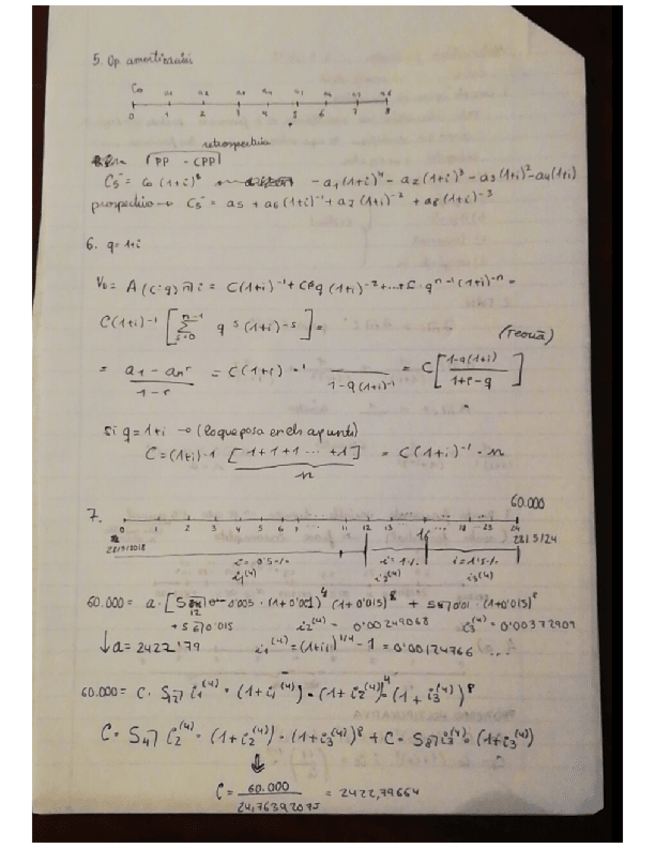 5. Op. amortización
C₀ a₁ a₂ a₃ a₄ a₅ a₆ a₇ a₈
0 1 2 3 4 5 6 7 8
retrospectiva
PP - CPP
C₅⁻ = C₀ (1+i)⁵ - a₁(1+i)⁴ - a₂(1+i)³ - a₃(1+i)² - a₄(1+i)
prospectivo → C₅⁻ = a₅ + a₆(1+i)⁻¹ + a₇(1+i)⁻² + a₈(1+i)⁻³
6. q=1+i
V₀ = A(c·q) n̅| i = C(1+i)⁻¹ + C q (1+i)⁻² + ... + C·qⁿ⁻¹(1+i)⁻ⁿ =
C(1+i)⁻¹ [ Σ s=0 n-1 qˢ(1+i)⁻ˢ ] =
(Teoría)
= a₁ - aₙr / 1-r = C(1+i)⁻¹ / 1-q(1+i)⁻¹ = C [ 1-q(1+i) / 1+i-q ]
Si q=1+i → (lo que posa en els apunts)
C = (1+i)⁻¹ [1+1+1 ... +1] = C(1+i)⁻¹ · n
n
60.000
7.
0 1 2 3 4 5 6 7 ... 11 12 13 ... 16 ... 18 23 24
28/3/2018 28/3/24
i = 0'5% i = 1% i = 1'5%
i₁⁽⁴⁾ i₂⁽⁴⁾ i₃⁽⁴⁾
60.000 = a·[S 12̅| 0'005 · (1+0'001)⁴ (1+0'015)⁸ + S 4̅| 0'01 · (1+0'015)⁸
+ S 8̅| 0'015 i₂⁽⁴⁾ = 0'00249068 i₃⁽⁴⁾ = 0'00372909
↓ a = 2422'79 i₁⁽⁴⁾ = (1+i₁)^1/4 - 1 = 0'00124766 ...
60.000 = C · S 12̅| i₁⁽⁴⁾ · (1+i₁⁽⁴⁾) · (1+i₂⁽⁴⁾)⁴ · (1+i₃⁽⁴⁾)⁸
C = S 4̅| i₂⁽⁴⁾ · (1+i₂⁽⁴⁾) · (1+i₃⁽⁴⁾)⁸ + C = S 8̅| i₃⁽⁴⁾ · (1+i₃⁽⁴⁾)
⇓
C = 60.000 / 24,76392075 = 2422,79664